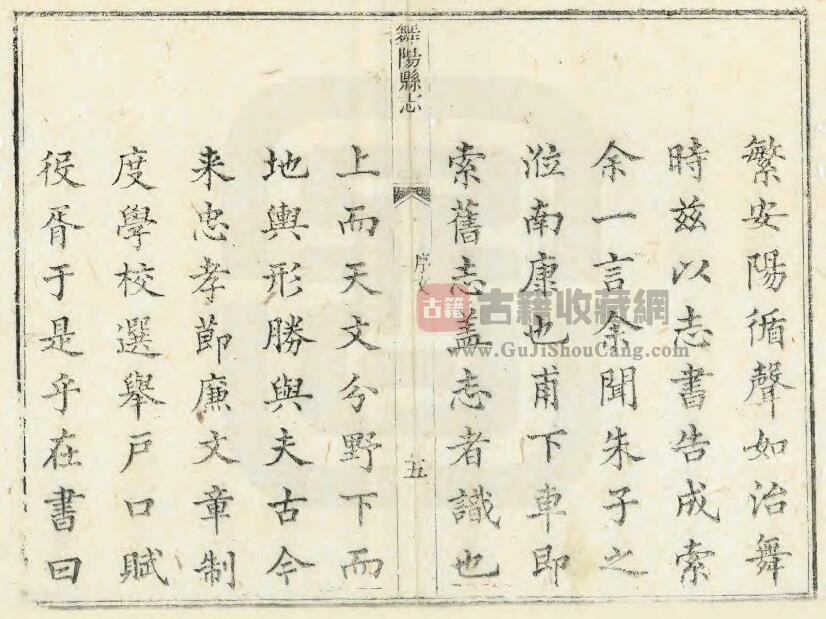 繁安陽循聲如治舞
時兹以志書告成索
余一言余聞朱子之
涖南康也甫下車即
索舊志盖志者識也
舞陽縣志
序文
五
上而天文分野下而
地輿形勝與夫古今
来忠孝節廉文章制
度學校選舉戶口賦
役胥于是乎在書曰
古籍
古籍收藏網
www.GuJiShouCang.com